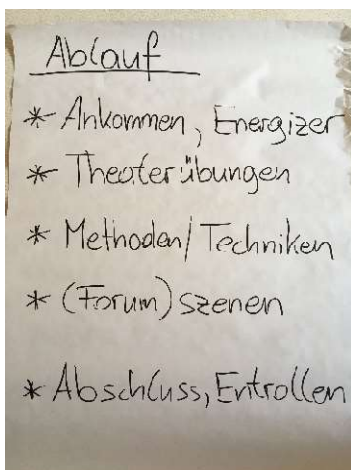 Ablauf
* Ankommen, Energizer
* Theaterübungen
* Methoden/Techniken
* (Forum)szenen
* Abschluss, Entrollen